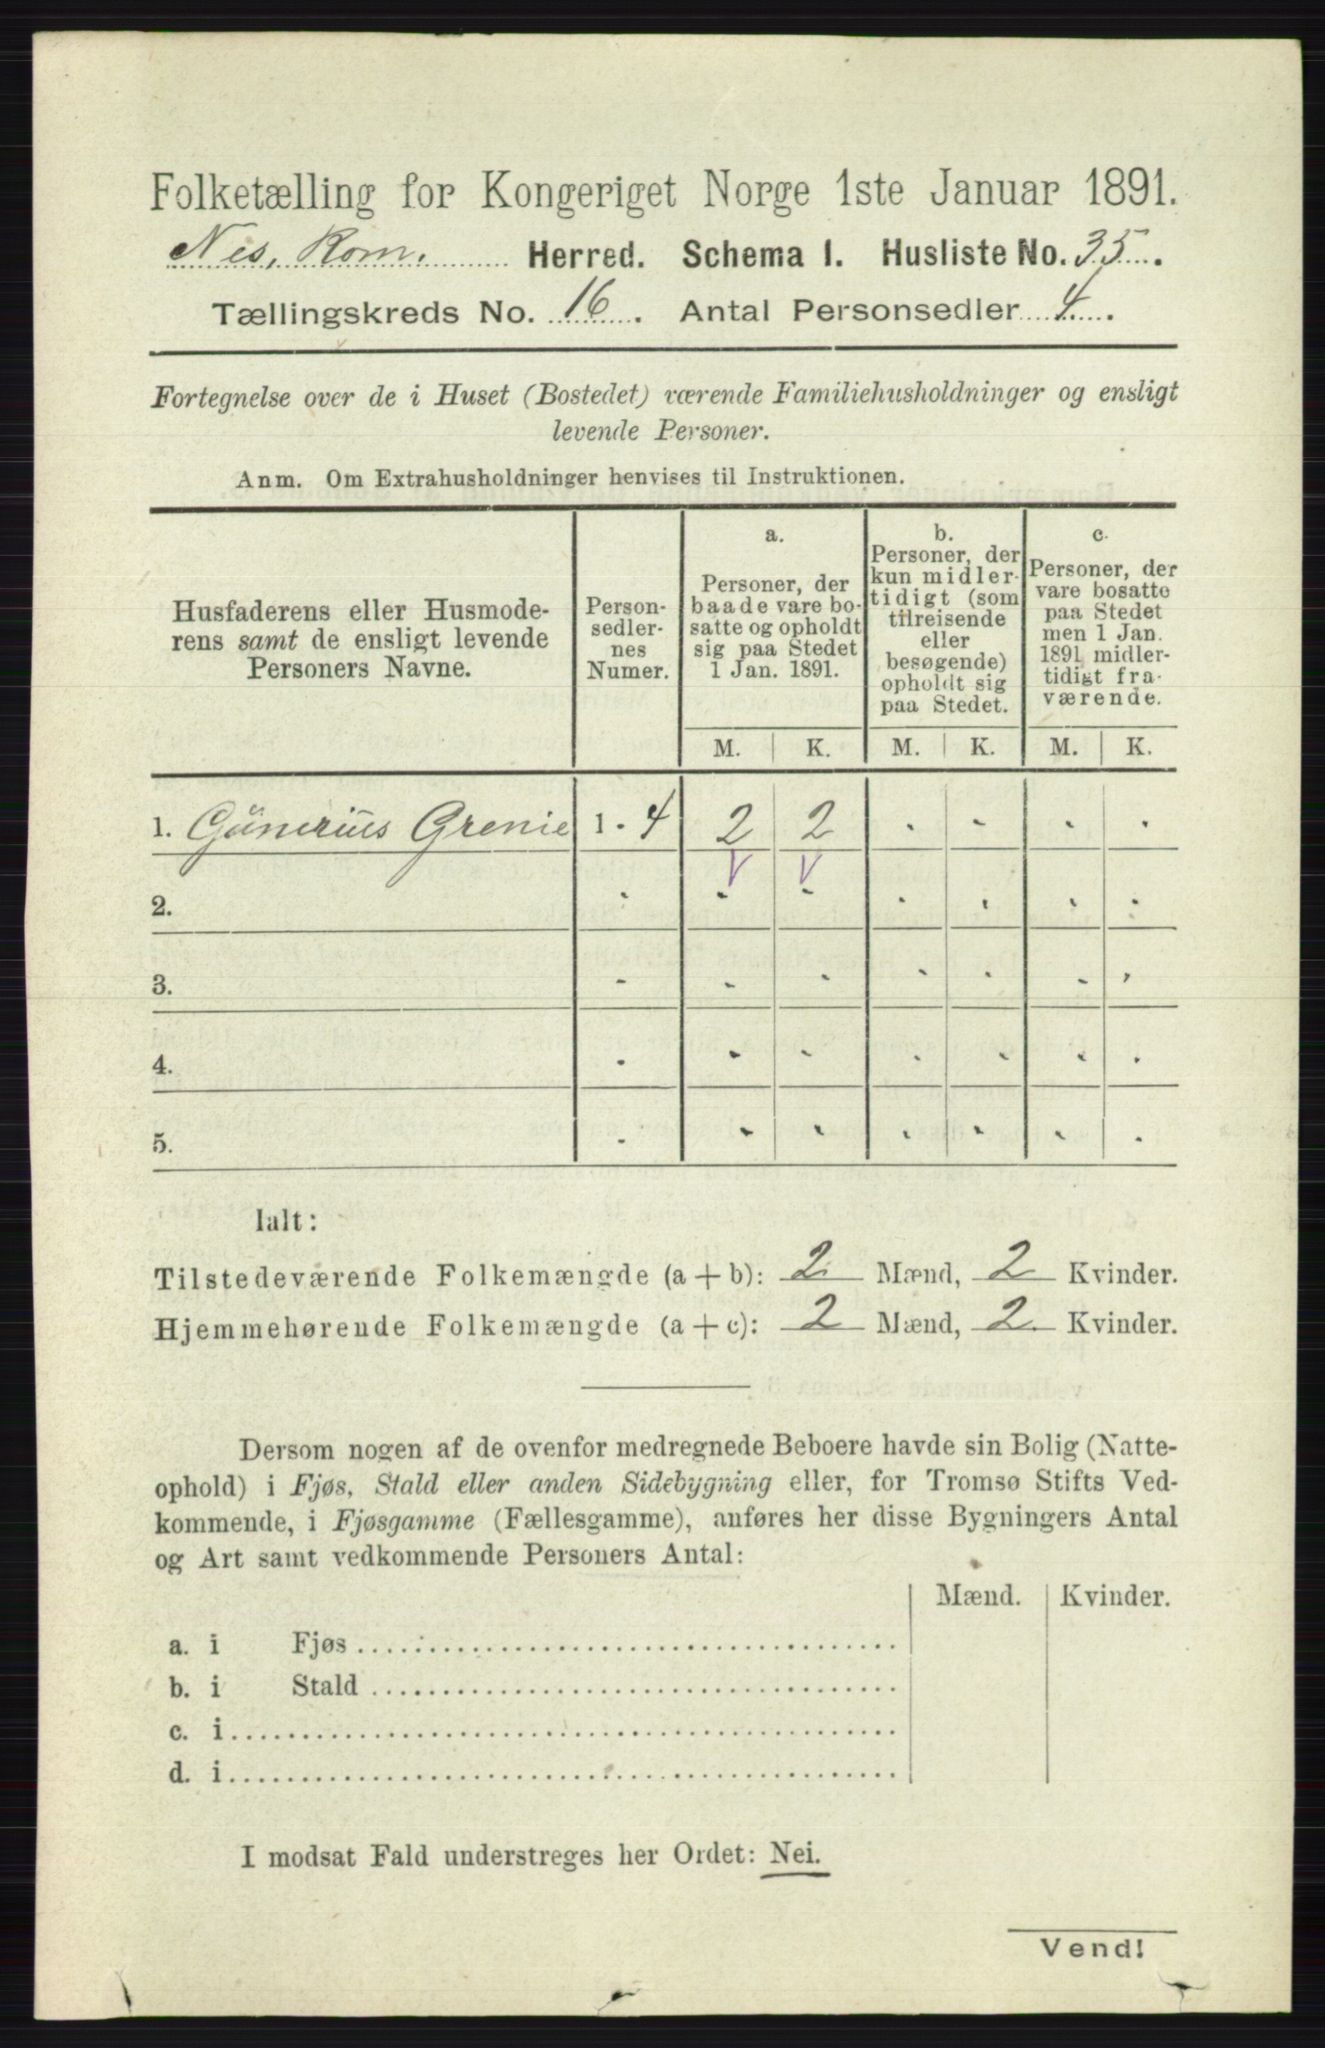 Folketælling for Kongeriget Norge 1ste Januar 1891.
Nes, Rom. Herred. Schema I. Husliste No. 35.
Tællingskreds No. 16. Antal Personsedler 4.
Fortegnelse over de i Huset (Bostedet) værende Familiehusholdninger og ensligt
levende Personer.
Anm. Om Extrahusholdninger henvises til Instruktionen.
Husfaderens eller Husmode-
rens samt de ensligt levende
Personers Navne.
Person-
sedler-
nes
Numer.
a.
Personer, der
baade vare bo-
satte og opholdt
sig paa Stedet
1 Jan. 1891.
b.
Personer, der
kun midler-
tidigt (som
tilreisende
eller
besøgende)
opholdt sig
paa Stedet.
c.
Personer, der
vare bosatte
paa Stedet
men 1 Jan.
1891 midler-
tidigt fra-
værende.
M. K. M. K. M. K.
1. Günerius Grenie 1 - 4 2 2 - - - -
2. - - - - - - -
3. - - - - - - -
4. - - - - - - -
5. - - - - - - -
Ialt:
Tilstedeværende Folkemængde (a + b): 2 Mænd, 2 Kvinder.
Hjemmehørende Folkemængde (a + c): 2 Mænd, 2 Kvinder.
Dersom nogen af de ovenfor medregnede Beboere havde sin Bolig (Natte-
ophold) i Fjøs, Stald eller anden Sidebygning eller, for Tromsø Stifts Ved-
kommende, i Fjøsgamme (Fællesgamme), anføres her disse Bygningers Antal
og Art samt vedkommende Personers Antal:
Mænd. Kvinder.
a. i Fjøs
b. i Stald
c. i
d. i
I modsat Fald understreges her Ordet: Nei.
Vend!